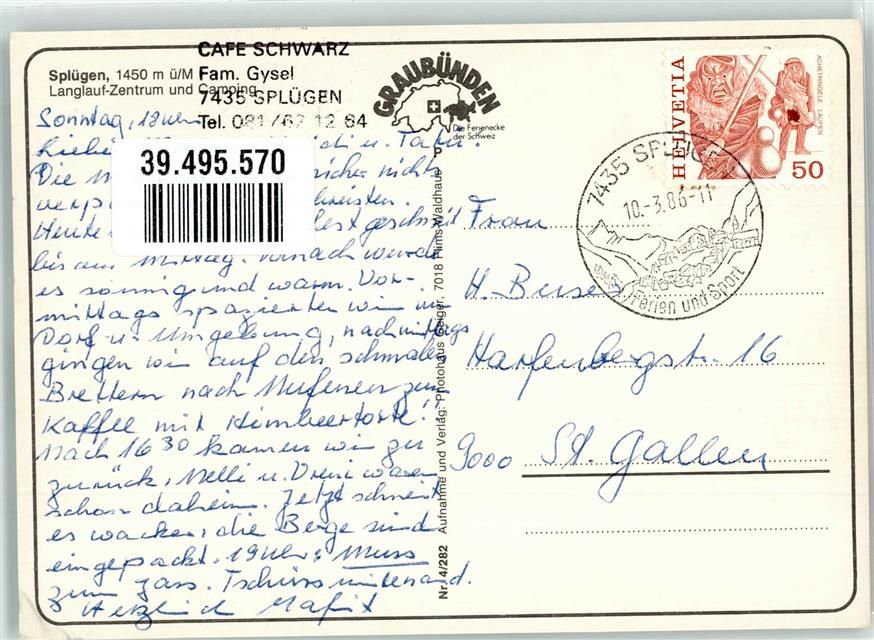 Splügen, 1450 m ü/M
Langlauf-Zentrum und Camping
CAFE SCHWARZ
Fam. Gysel
7435 SPLÜGEN
Tel. 081/62 12 84
GRAUBÜNDEN
Die Ferienecke
der Schweiz
HELVETIA
ACHETRINGELE LAUPEN
50
7435 SPLÜGEN
10.-3.86-11
Ferien und Sport
39.495.570
Sonntag, 18 Uhr
Die
Heute
bis am Mittag. Danach wurde
es sonnig und warm. Vor-
mittags spazierten wir im
Dorf u. Umgebung, nachmittags
gingen wir auf den schmalen
Brettern nach Nufenen zum
Kaffee mit Himbeertorte!
Nach 16 30 kamen wir
zurück, Nelli u. Vreni waren
schon daheim. Jetzt schneit
es wacker, die Berge sind
eingepackt. 19 Uhr: Muss
zum Jass. Tschüss mitenand.
Herzlich
P
Nr. 4/282 Aufnahme und Verlag: Photohaus Geiger, 7018 Flims-Waldhaus
Frau
H. Buser
Harfenbergstr. 16
9000 St. Gallen